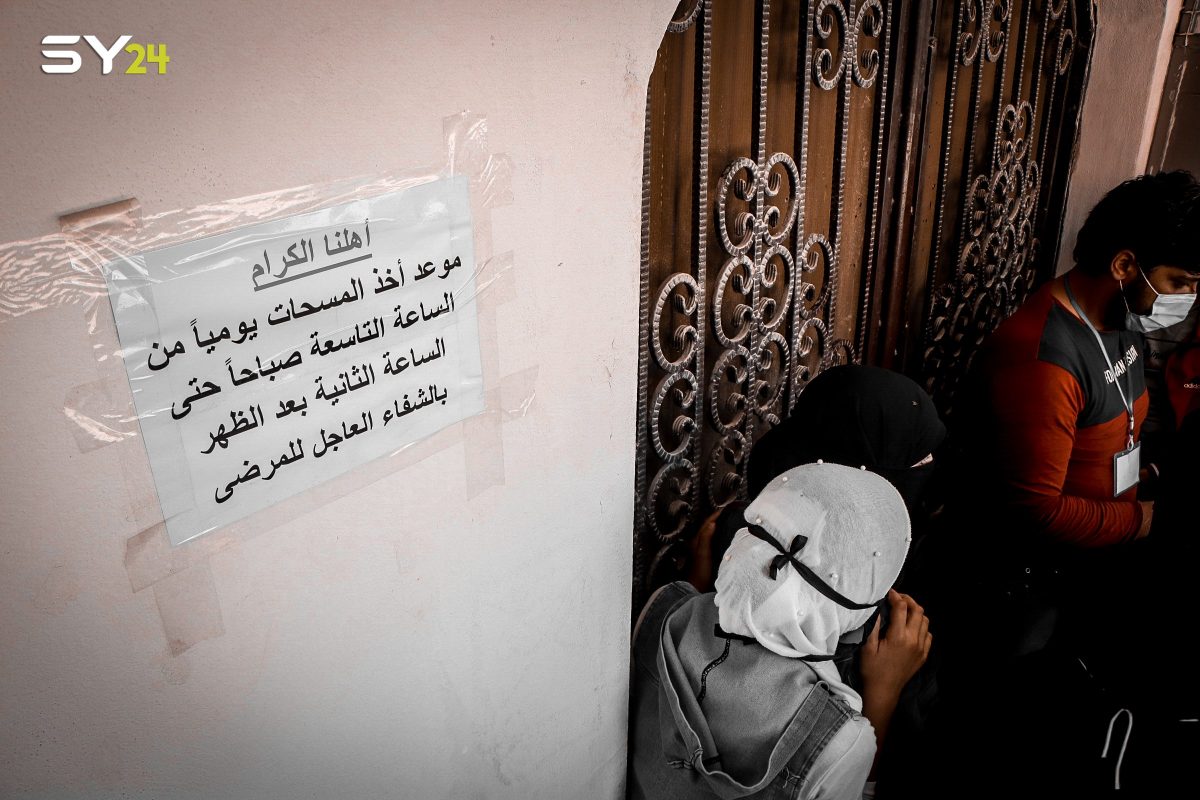 SY24
أهلنا الكرام
موعد أخذ المسحات يومياً من
الساعة التاسعة صباحاً حتى
الساعة الثانية بعد الظهر
بالشفاء العاجل للمرضى
adidas